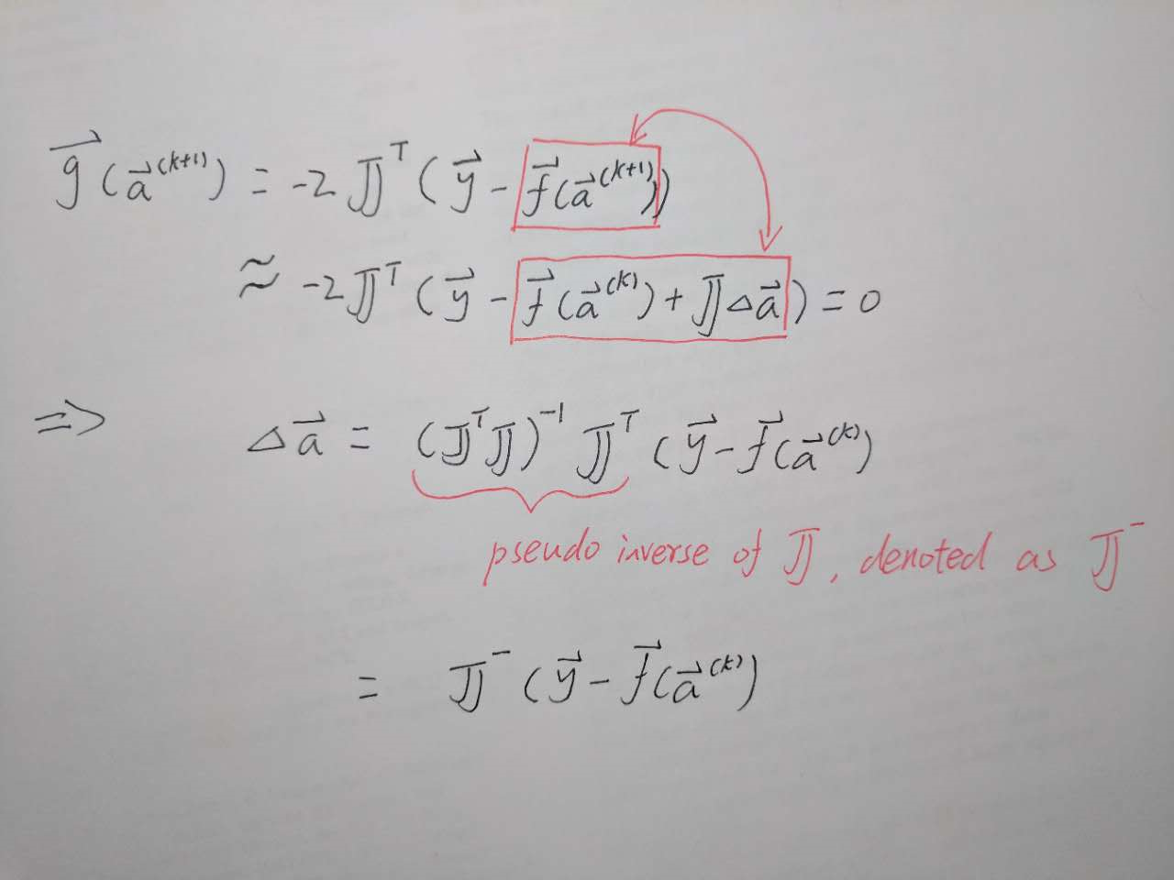 g⃗(a⃗⁽ᵏ⁺¹⁾) = -2𝕁ᵀ(y⃗ - f⃗(a⃗⁽ᵏ⁺¹⁾))
≈ -2𝕁ᵀ(y⃗ - f⃗(a⃗⁽ᵏ⁾) + 𝕁△a⃗) = 0
=> △a⃗ = (𝕁ᵀ𝕁)⁻¹ 𝕁ᵀ (y⃗ - f⃗(a⃗⁽ᵏ⁾)
pseudo inverse of 𝕁, denoted as 𝕁⁻
= 𝕁⁻ (y⃗ - f⃗(a⃗⁽ᵏ⁾)